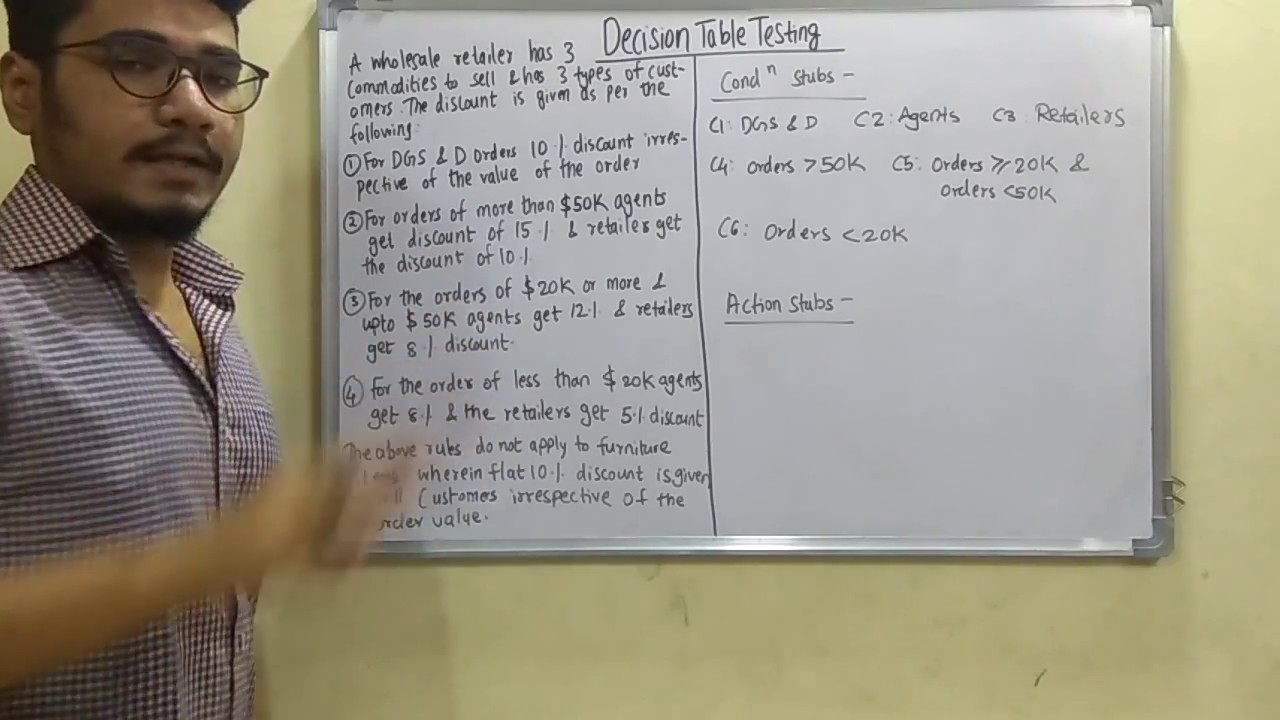 Decision Table Testing
A wholesale retailer has 3
Commodities to sell & has 3 types of cust-
omers. The discount is given as per the
following:
① For DGS & D orders 10 % discount irres-
pective of the value of the order
② For orders of more than $50K agents
get discount of 15 % & retailer get
the discount of 10 %.
③ For the orders of $20K or more &
upto $50K agents get 12% & retailers
get 8 % discount.
④ for the order of less than $ 20K agents
get 8% & the retailers get 5% discount
The above rules do not apply to furniture
wherein flat 10% discount is given
Customers irrespective of the
order value.
Condⁿ Stubs -
C1: DGS & D C2: Agents C3 Retailers
C4: orders >50K C5: Orders ≥20K &
orders <50K
C6: Orders <20K
Action Stubs -